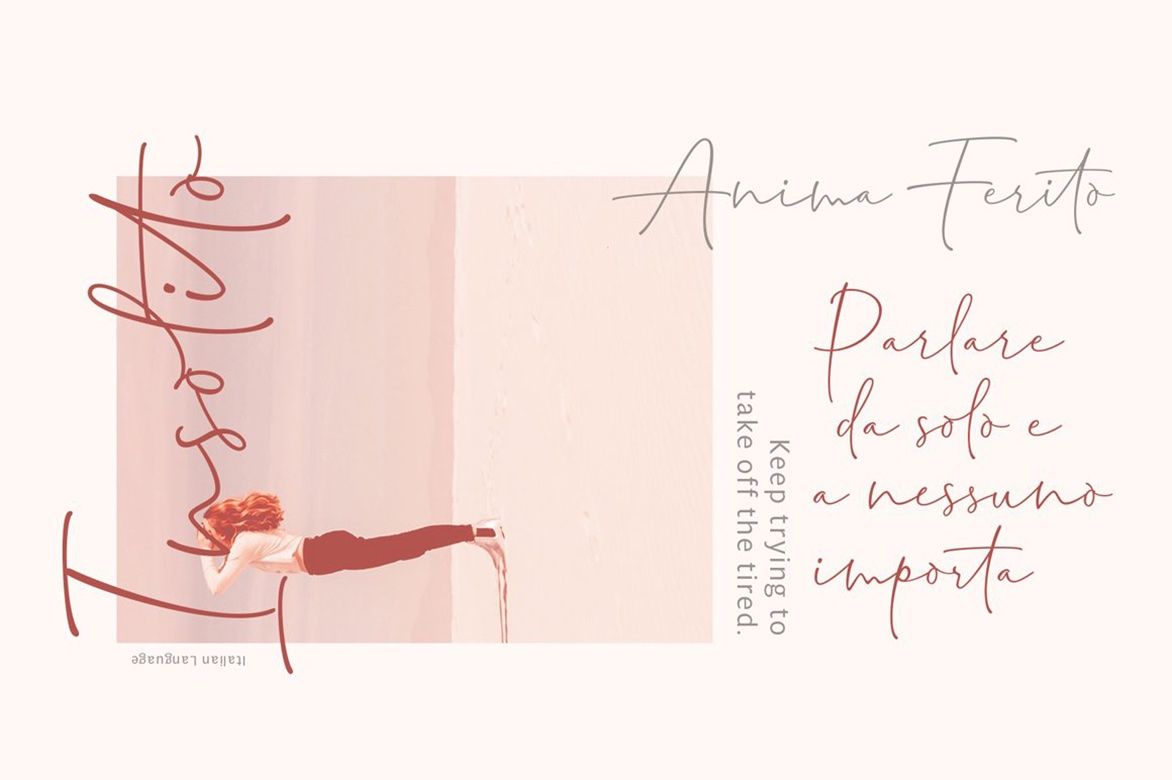 Insolito
Italian Language
Anima Ferito
Keep trying to
take off the tired.
Parlare
da solo e
a nessuno
importa